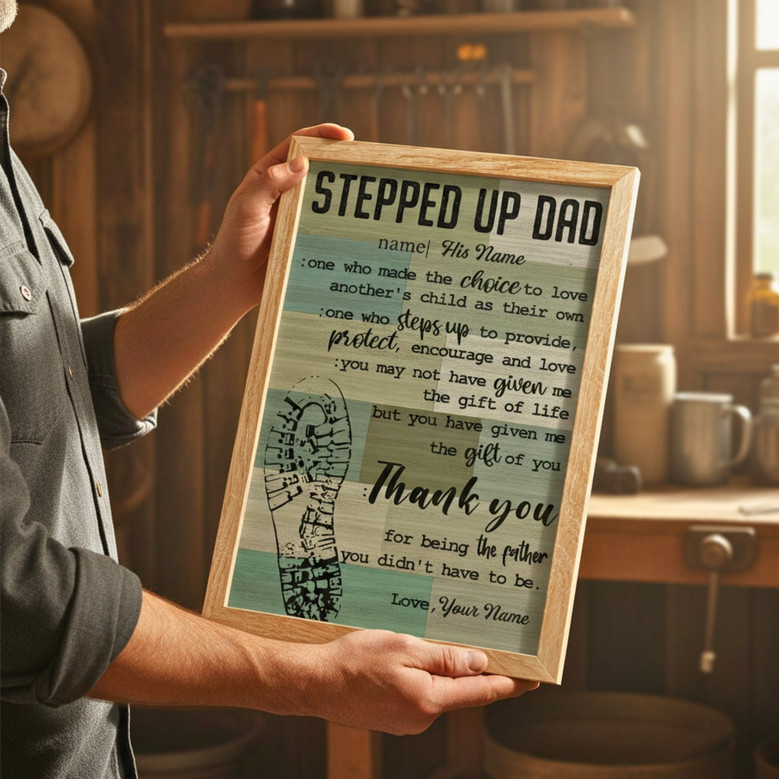 STEPPED UP DAD
name| His Name
:one who made the choice to love
another's child as their own
:one who steps up to provide,
protect, encourage and love
:you may not have given me
the gift of life
but you have given me
the gift of you
:Thank you
for being the father
you didn't have to be.
Love, Your Name